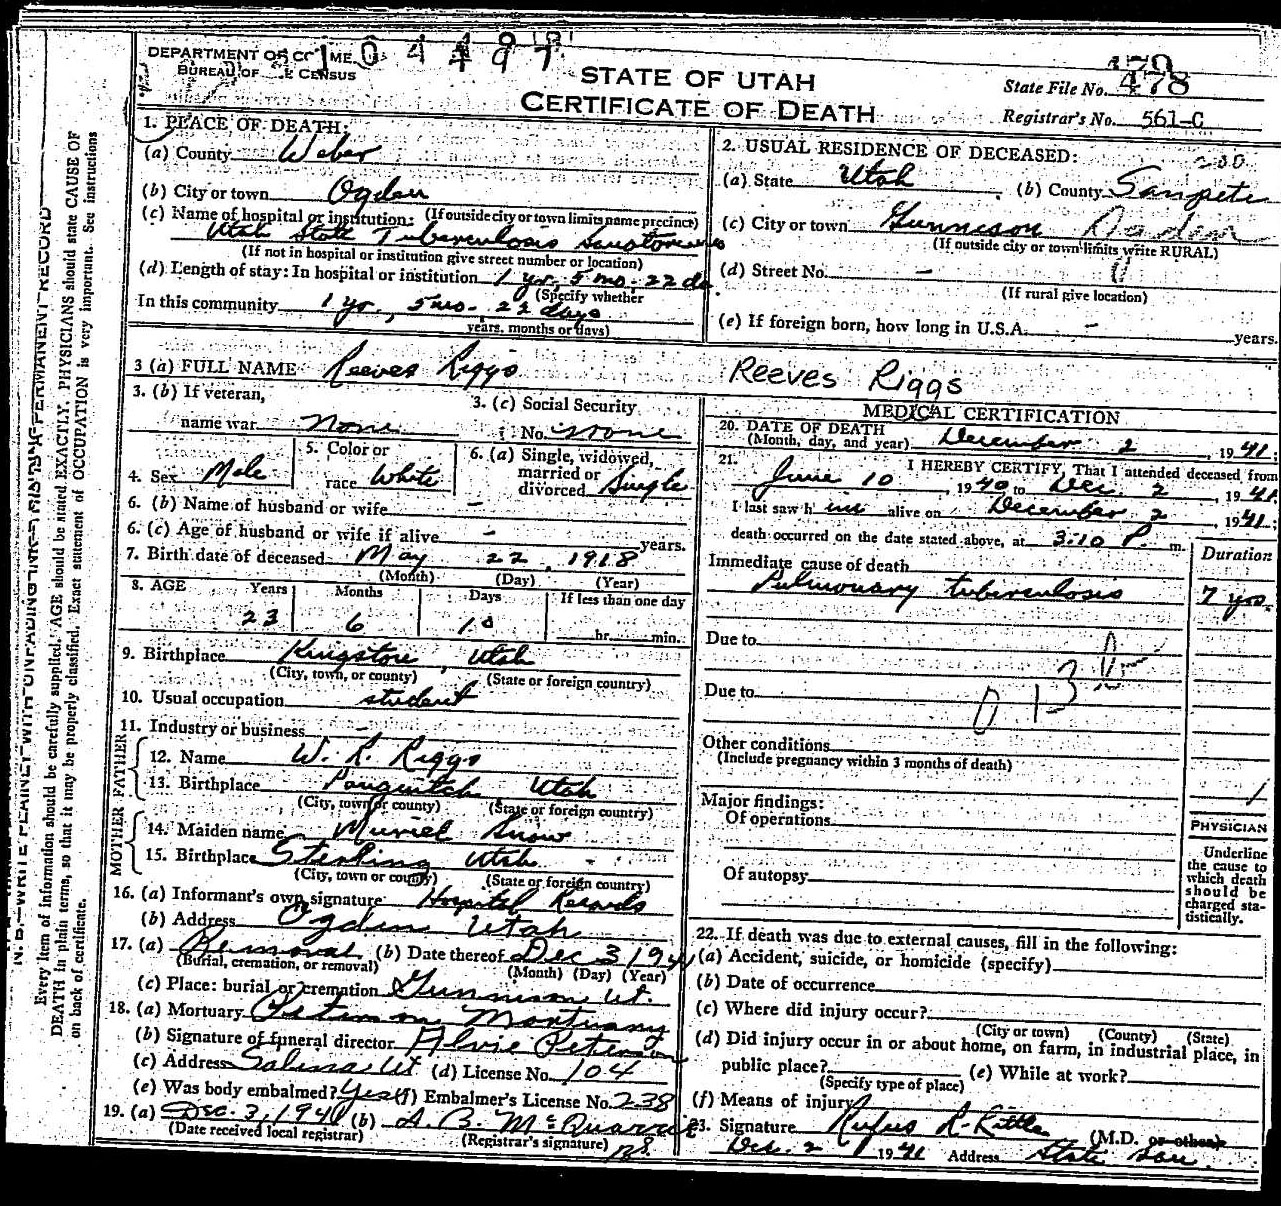 DEPARTMENT OF COMMERCE
BUREAU OF THE CENSUS
STATE OF UTAH
CERTIFICATE OF DEATH
State File No. 478
Registrar's No. 561-C
1. PLACE OF DEATH:
(a) County Weber
(b) City or town Ogden
(c) Name of hospital or institution: (If outside city or town limits name precinct)
Utah State Tuberculosis Sanatorium
(If not in hospital or institution give street number or location)
(d) Length of stay: In hospital or institution 1 yr, 5 mo. 22 da.
(Specify whether
In this community 1 yr., 5 mo. 22 days
years, months or days)
2. USUAL RESIDENCE OF DECEASED:
(a) State Utah (b) County Sanpete
(c) City or town Gunnison Ogden
(If outside city or town limits write RURAL)
(d) Street No. -
(If rural give location)
(e) If foreign born, how long in U.S.A. - years.
3 (a) FULL NAME Reeves Riggs Reeves Riggs
3. (b) If veteran,
name war None
3. (c) Social Security
No. none
4. Sex Male
5. Color or
race White
6. (a) Single, widowed,
married or
divorced Single
6. (b) Name of husband or wife -
6. (c) Age of husband or wife if alive - years.
7. Birth date of deceased May 22, 1918
(Month) (Day) (Year)
8. AGE Years Months Days If less than one day
23 6 10 hr. min.
9. Birthplace Kingston, Utah
(City, town, or county) (State or foreign country)
10. Usual occupation student
11. Industry or business -
FATHER
12. Name W. R. Riggs
13. Birthplace Panguitch Utah
(City, town or county) (State or foreign country)
MOTHER
14. Maiden name Muriel Snow
15. Birthplace Sterling Utah
(City, town or county) (State or foreign country)
16. (a) Informant's own signature Hospital Records
(b) Address Ogden Utah
17. (a) Removal (b) Date thereof Dec 3 1941
(Burial, cremation, or removal) (Month) (Day) (Year)
(c) Place: burial or cremation Gunnison Ut.
18. (a) Mortuary Peterson Mortuary
(b) Signature of funeral director Alvie Peterson
(c) Address Salina Ut (d) License No. 104
(e) Was body embalmed? Yes (f) Embalmer's License No. 238
19. (a) Dec. 3, 1941 (b) A. B. McQuarrie
(Date received local registrar) (Registrar's signature)
MEDICAL CERTIFICATION
20. DATE OF DEATH
(Month, day, and year) December 2, 1941;
21. I HEREBY CERTIFY, That I attended deceased from
June 10, 1940 to Dec. 2, 1941
I last saw h im alive on December 2, 1941;
death occurred on the date stated above, at 3:10 P. m.
Duration
Immediate cause of death
Pulmonary tuberculosis 7 yrs.
Due to
Due to
Other conditions
(Include pregnancy within 3 months of death)
Major findings:
Of operations
Of autopsy
PHYSICIAN
Underline
the cause to
which death
should be
charged sta-
tistically.
22. If death was due to external causes, fill in the following:
(a) Accident, suicide, or homicide (specify)
(b) Date of occurrence
(c) Where did injury occur?
(City or town) (County) (State)
(d) Did injury occur in or about home, on farm, in industrial place, in
public place? (e) While at work?
(Specify type of place)
(f) Means of injury
23. Signature Rufus R. Little (M.D. or other)
Dec. 2 1941 Address State San.
N. B.—WRITE PLAINLY WITH UNFADING INK—THIS IS A PERMANENT RECORD
Every item of information should be carefully supplied. AGE should be stated EXACTLY. PHYSICIANS should state CAUSE OF
DEATH in plain terms, so that it may be properly classified. Exact statement of OCCUPATION is very important. See instructions
on back of certificate.